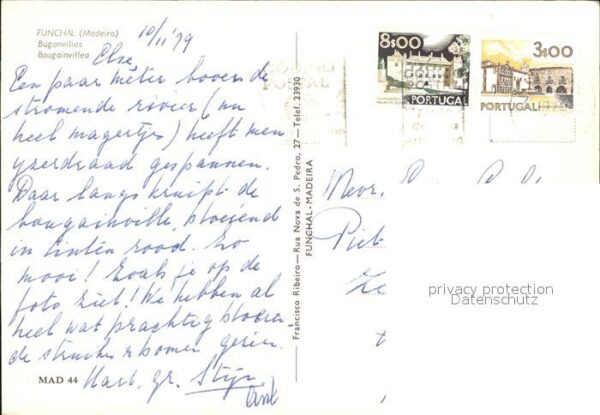 FUNCHAL (Madeira)
Buganvílias
Bougainvillea
10/11 '79
Else,
Een paar meter boven de
stromende rivier (nu
heel magertjes) heeft men
yzerdraad gespannen.
Daar langs kruipt de
bougainville, bloeiend
in tinten rood. Zo
mooi! Zoals je op de
foto ziet! We hebben al
heel wat prachtig bloeien-
de struiken & bomen gezien.
Hart. gr. Stijn
MAD 44
Francisco Ribeiro — Rua Nova de S. Pedro, 27 — Telef. 23930
FUNCHAL-MADEIRA
8$00
PORTUGAL
3$00
PORTUGAL
CÓDIGO
POSTAL
Mevr.
Piet
privacy protection
Datenschutz